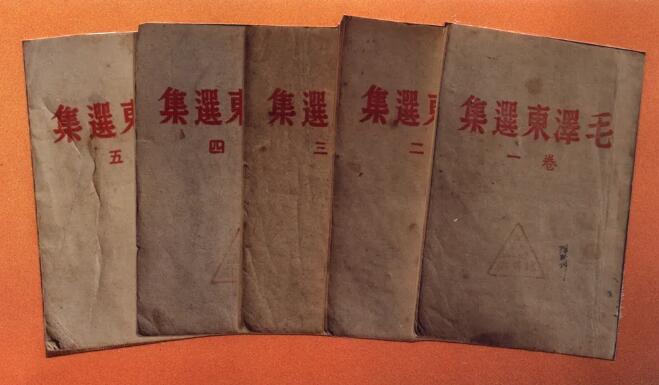 毛澤東選集
卷一
東選集
二
選集
三
東選集
四
東選集
五